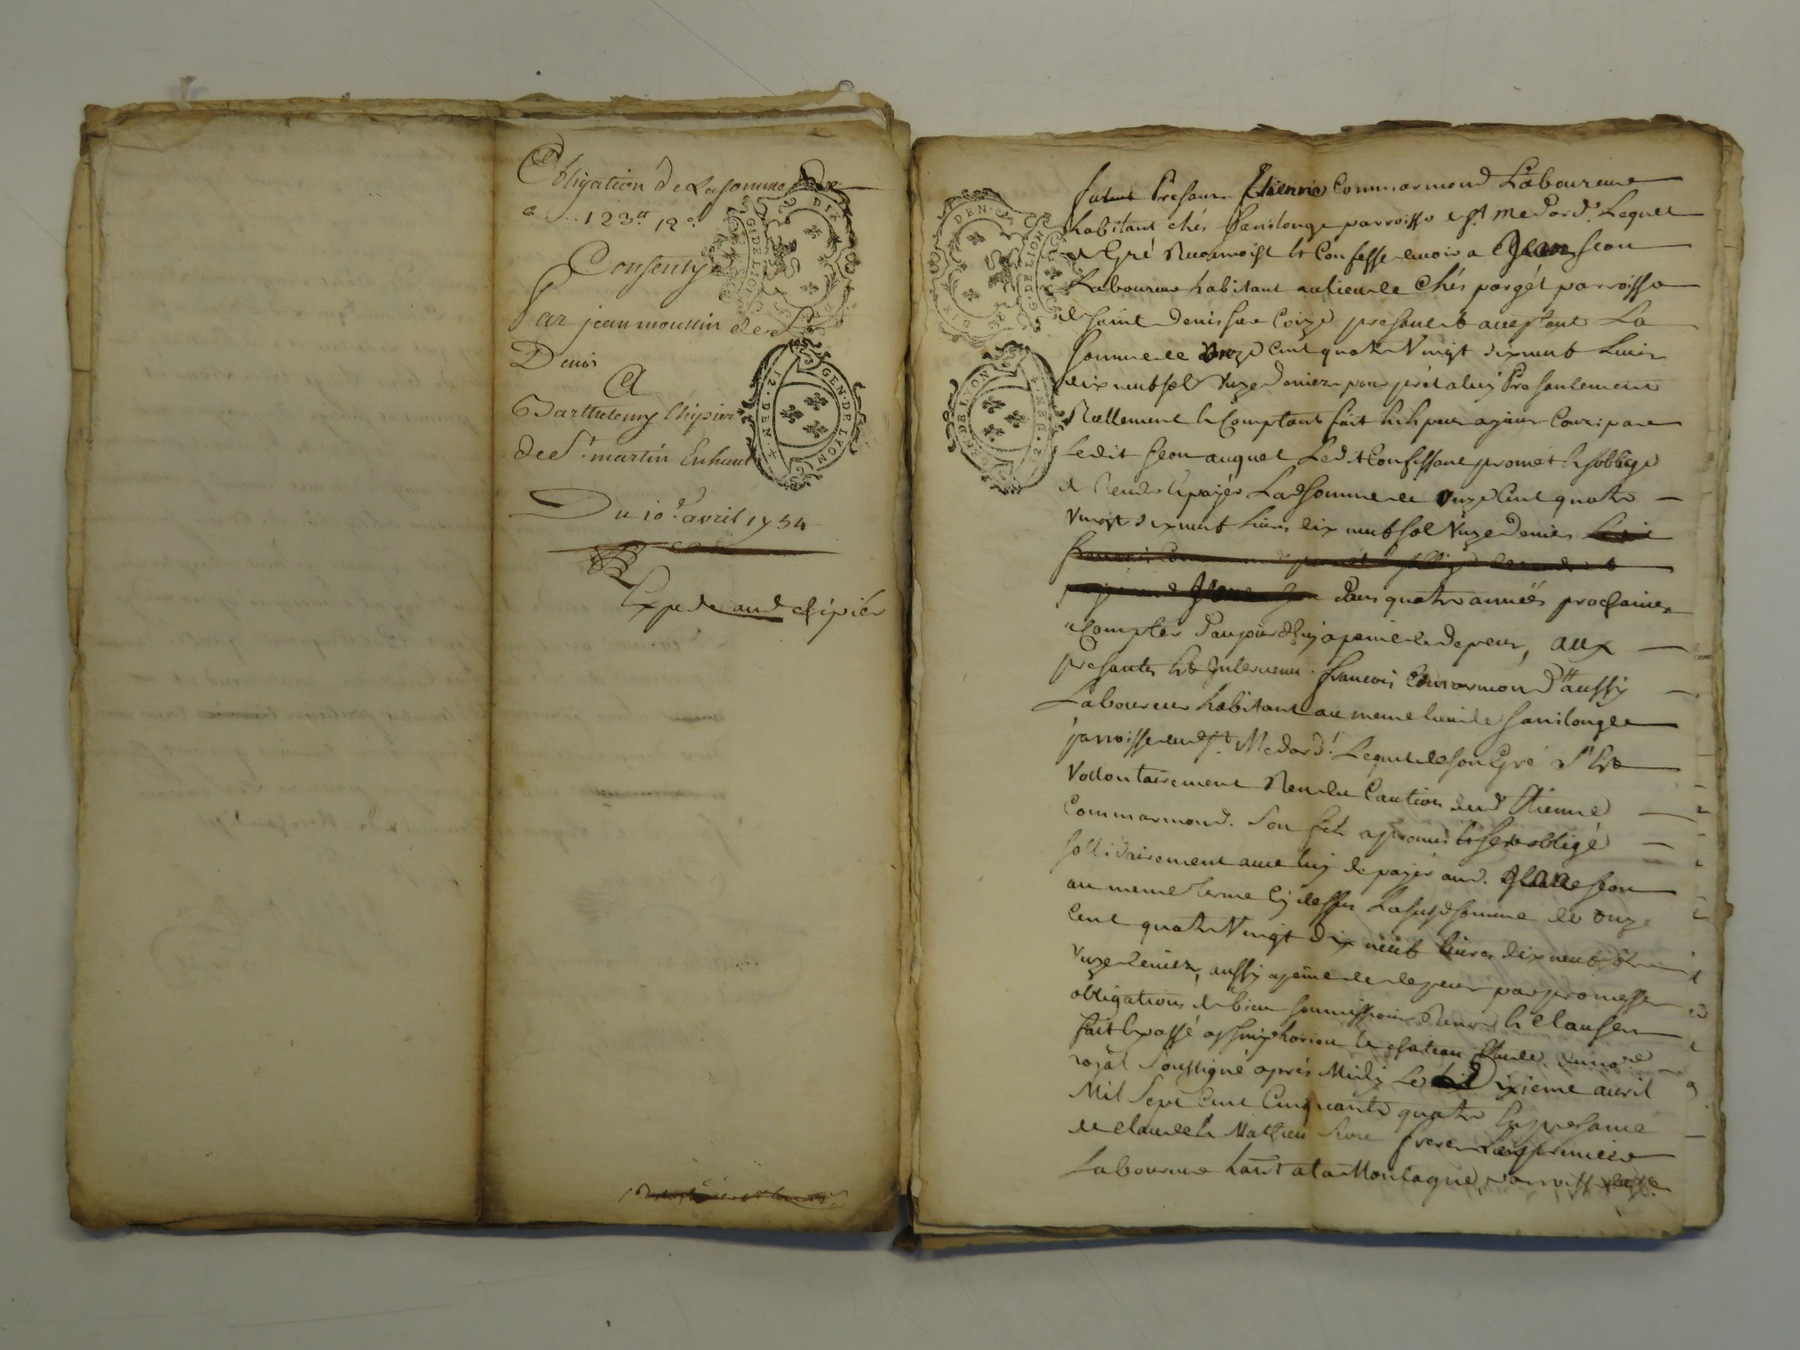 Obligation de La somme de
a .. 123ᵗᵗ 12ˢ
Consentye
Par jean moussin de Sᵗ
Denis
A
Barthelemy Chipier
de Sᵗ martin Enhaut
Du 10ᵉ avril 1754
Exped. aud. chipier
Etienne Commarmond Laboureur
habitant chés Sanilonge parroisse de Sᵗ Medard. Lequel
de Gré Reconnoist et Confesse devoir a Jean Seon
Laboureur habitant au lieu de Chés pargét parroisse
de Saint Denis Sur Coize present et acceptant La
Somme de onze Cent quatre Vingt dix neuf Livres
dix neuf sol onze deniers pour prét a luy Presentement
Réellement et Comptant fait
Ledit Seon auquel Led. Confessant promet et s'oblige
de Rendre et payér Lad. Somme de onze Cent quatre
Vingt dix neuf Livres dix neuf sol onze deniers
dans quatre années prochaines
a Comptér d'aujourd'huy a peine de depens, aux
presantes Est Intervenu francois Commarmond aussy
Laboureur habitant au meme lieu de Sanilonge
parroisse dud. Sᵗ Medard. Lequel de Son Gré S'Est
Vollontairement Rendu Caution dud. Etienne
Commarmond. Son fils a promis et s'est obligé
Sollidairement avec luy de payér aud. Jean Seon
au meme terme Cy dessus La susd. Somme de onze
Cent quatre Vingt dix neuf livres dix neuf sol
onze deniers, aussy a peine de depens par promesse
obligations de bien Soumissions Renon. et Clauses
fait et passé a Sᵗ Simphorien le chateau Etude du no.ʳᵉ
royal Soussigné aprés Midy Le Dixieme avril
Mil Sept Cent Cinquante quatre En presance
de Claude et Mathieu frere Le premier
Laboureur hant a la Montagne, parroisse